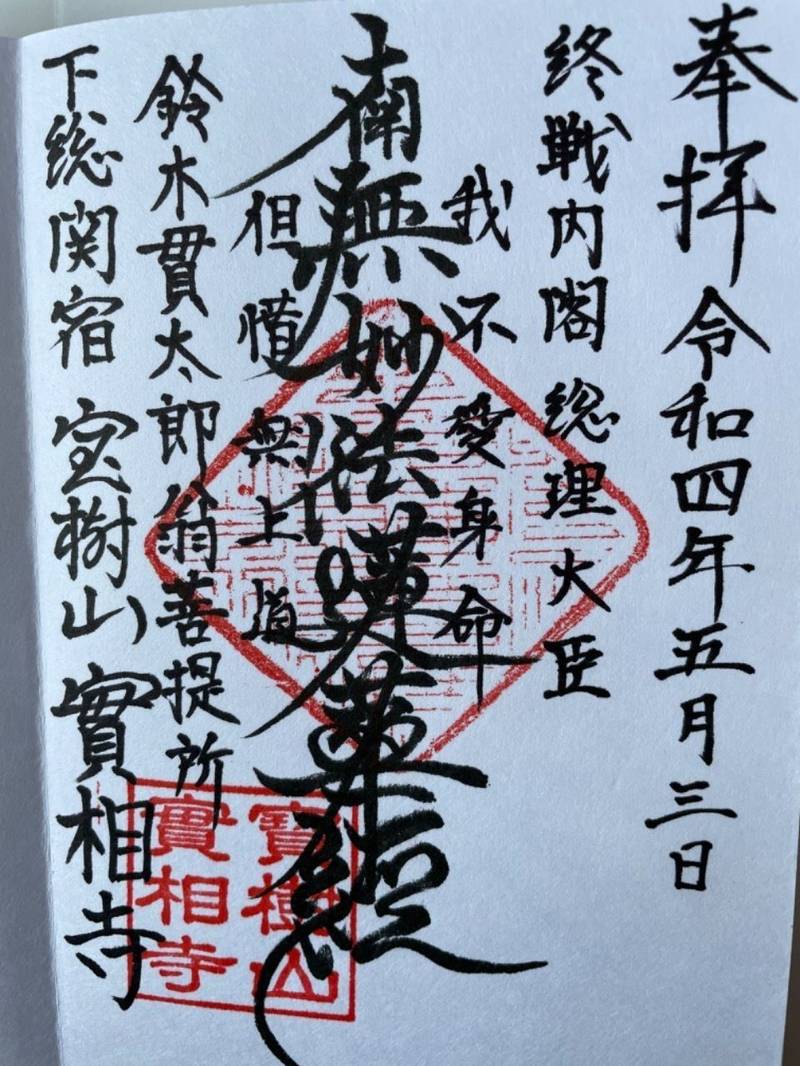 奉拝 令和四年五月三日
終戦内閣総理大臣
我不愛身命
南無妙法蓮華経
但惜無上道
鈴木貫太郎翁菩提所
下総関宿 宝樹山 實相寺
寶樹山
實相寺